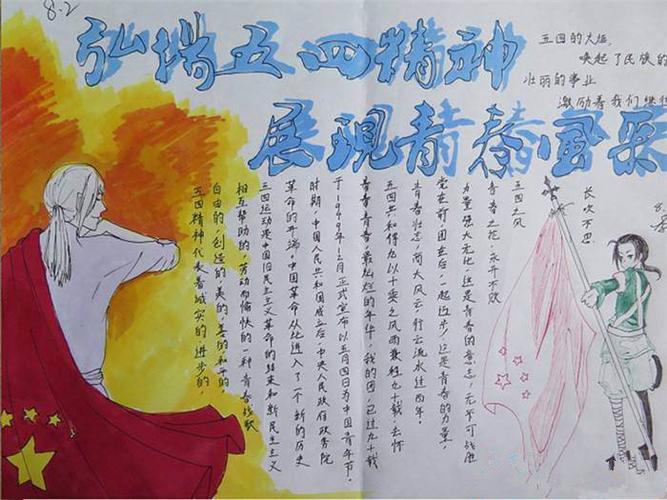 8.2
弘揚五四精神
展現青春風采
五四的火炬,
唤起了民族的
壮丽的事业
激励着我们继往
五四精神代表着诚实的,进步的,
自由的,创造的,美的,善的,和平的,
相互帮助的,劳动而愉快的一种青春战歌
五四运动是中国旧民主主义革命的结束和新民主主义
革命的开端,中国革命从此进入了一个新的历史
时期,中国人民共和国成立后,中央人民政府政务院
于1949年12月正式宣布以五月四日为中国青年节。
青春青春,最灿烂的年华,我的团,已过九十载
五四 风雨兼程九十载,
青春壮志, 风云,行云流水过百年。
党在前,团在后,一起迈步,这是青春的力量,
力量强大无比,这是青春的意志,无 可战胜
青春之花,永开不败
五四之风
长久不息